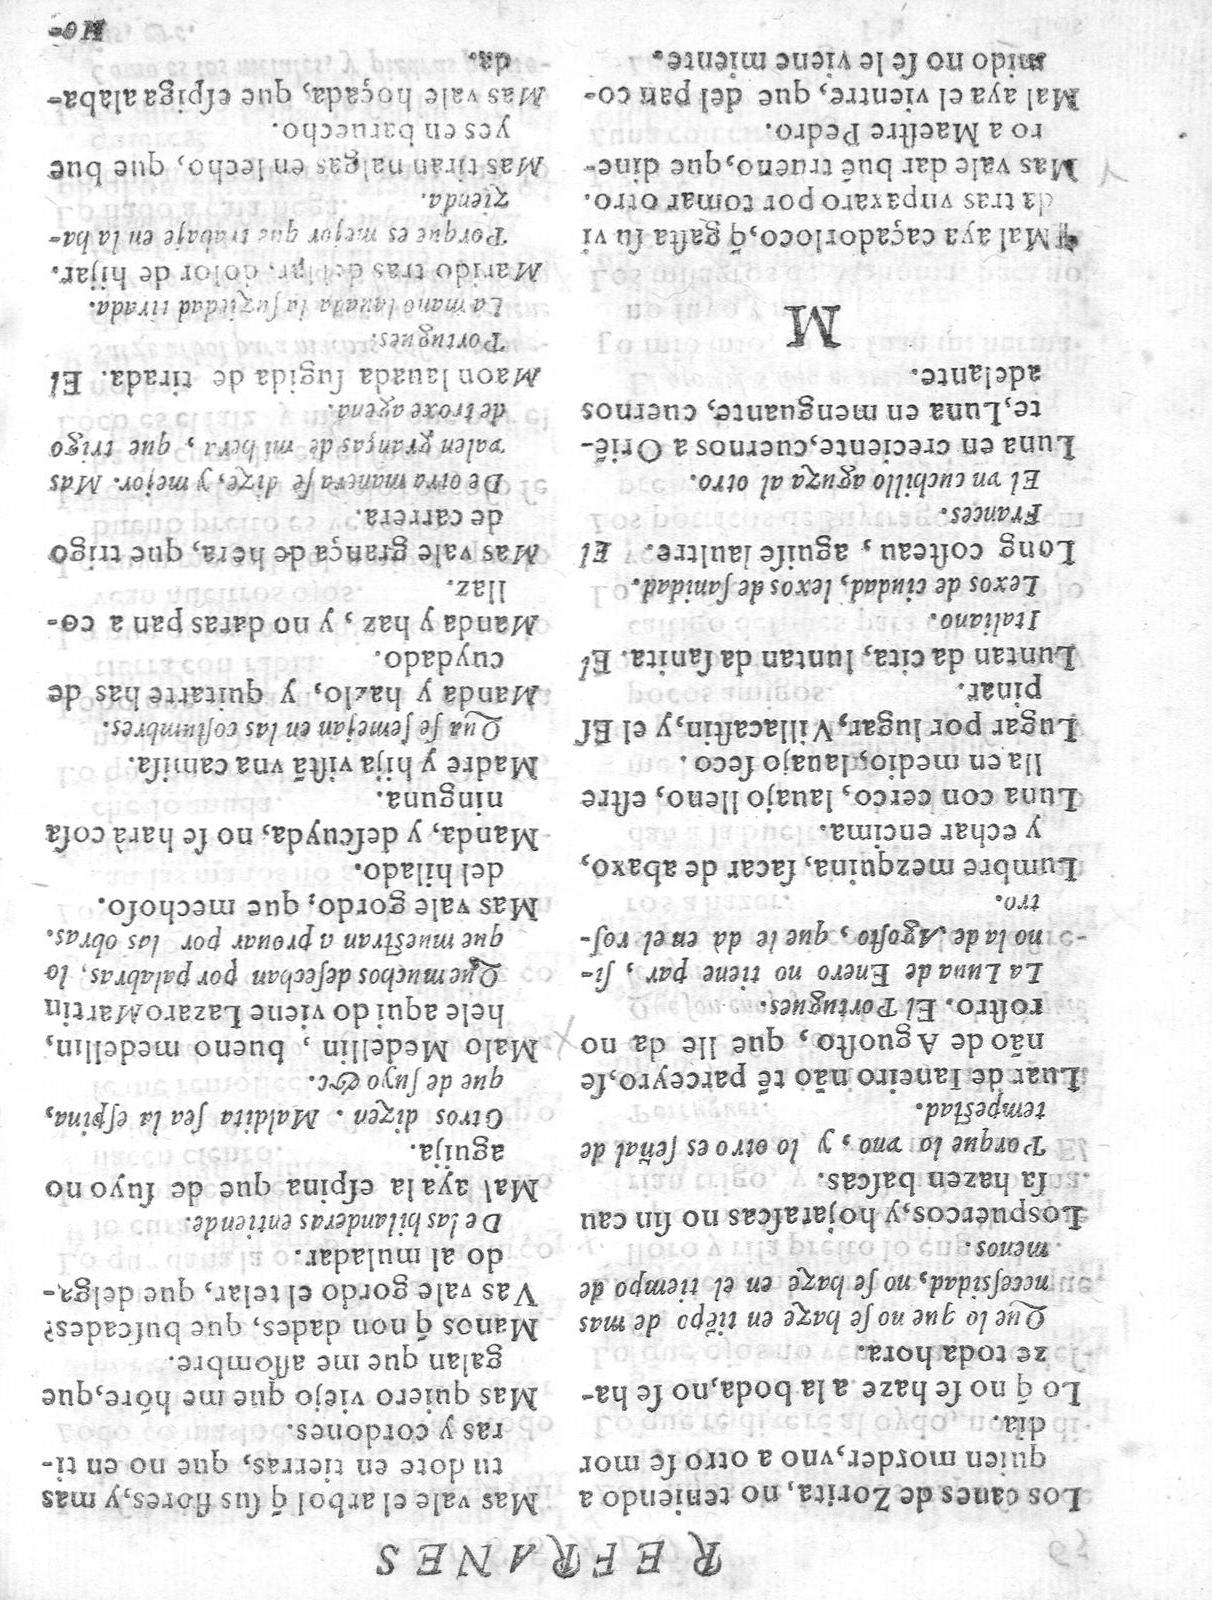 REFRANES
Los canes de Zorita, no teniendo a
quien morder, vno a otro ſe mor
dia.
Lo q̃ no ſe haze a la boda, no ſe ha-
ze toda hora.
Que lo que no ſe haze en tiẽpo de mas
neceſsidad, no ſe haze en el tiempo de
menos.
Los puercos, y hojaraſcas no ſin cau
ſa hazen baſcas.
Porque lo vno, y lo otro es ſeñal de
tempeſtad.
Luar de Ianeiro não tẽ parceyro, ſe
não de Aguoſto, que lle da no
roſtro. El Portugues.
La Luna de Enero no tiene par, ſi-
no la de Agoſto, que le dà en el roſ-
tro.
Lumbre mezquina, ſacar de abaxo,
y echar encima.
Luna con cerco, lauajo lleno, eſtre
lla en medio, lauajo ſeco.
Lugar por lugar, Villacaſtin, y el Eſ
pinar.
Luntan da cita, luntan da ſanita. El
Italiano.
Lexos de ciudad, lexos de ſanidad.
Long coſteau, aguiſe laultre. El
Frances.
El vn cuchillo aguza al otro.
Luna en creciente, cuernos a Oriẽ-
te, Luna en menguante, cuernos
adelante.
M
¶ Mal aya caçador loco, q̃ gaſta ſu vi
da tras vn paxaro por tomar otro.
Mas vale dar buẽ trueno, que dine-
ro a Maeſtre Pedro.
Mal aya el vientre, que del pan co-
mido no ſe le viene miente.
Mas vale el arbol q̃ ſus flores, y mas
tu dote en tierras, que no en ti-
ras y cordones.
Mas quiero viejo que me hõre, que
galan que me aſſombre.
Manos q̃ non dades, que buſcades?
Vas vale gordo el telar, que delga-
do al muladar.
De las hilanderas entiende.
Mal aya la eſpina que de ſuyo no
aguija.
Otros dizen. Maldita ſea la eſpina,
que de ſuyo &c.
Malo Medellin, bueno medellin,
hele aqui do viene Lazaro Martin
Que muchos deſechan por palabras, lo
que mueſtran aprouar por las obras.
Mas vale gordo, que mechoſo.
del hilado.
Manda, y deſcuyda, no ſe harà coſa
ninguna.
Madre y hija viſtẽ vna camiſa.
Que ſe ſemejan en las coſtumbres.
Manda y hazlo, y quitarte has de
cuydado.
Manda y haz, y no daras pan a co-
llaz.
Mas vale grança de hera, que trigo
de carrera.
De otra manera ſe dize, y mejor. Mas
valen granças de mi hera, que trigo
de troxe agena.
Maon lauada ſugida de tirada. El
Portugues.
La mano lauada la ſuziedad tirada.
Marido tras del lar, dolor de hijar.
Porque es mejor que trabaje en la ha-
zienda.
Mas tiran nalgas en lecho, que bue
yes en baruecho.
Mas vale hoçada, que eſpiga alaba-
da.
Mo-